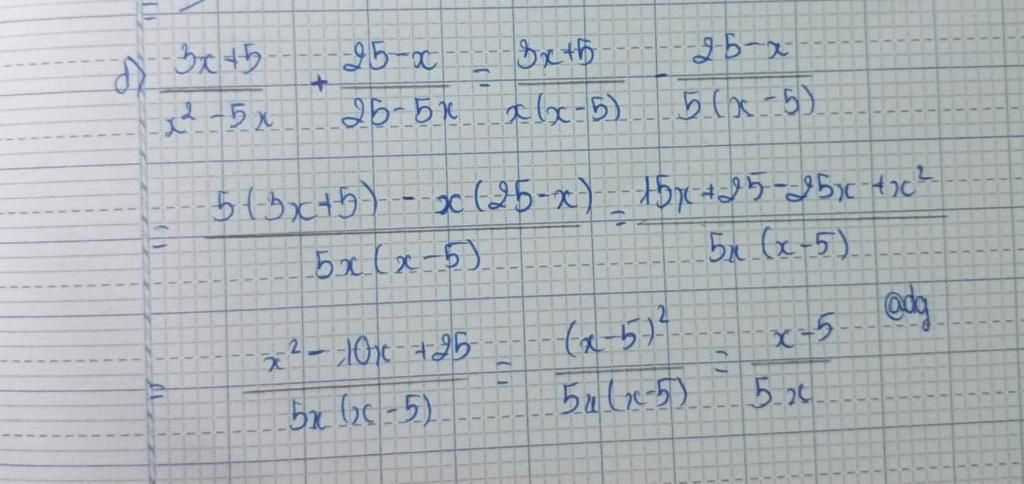 b) (3x+5)/(x² - 5x) + (25-x)/(25-5x) = (3x+5)/(x(x-5)) - (25-x)/(5(x-5))
= (5(3x+5) - x(25-x))/(5x(x-5)) = (15x+25-25x+x²)/(5x(x-5))
= (x² - 10x + 25)/(5x(x-5)) = (x-5)²/(5x(x-5)) = (x-5)/(5x) @dg